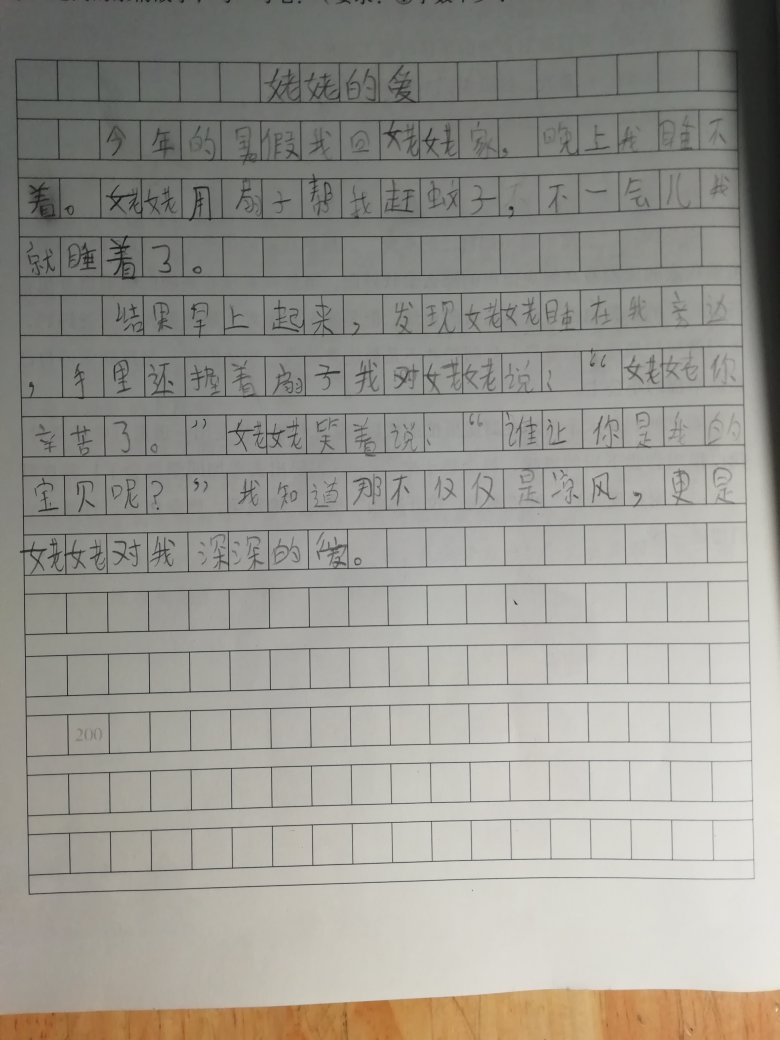 姥姥的爱
今年的暑假我回姥姥家。晚上我睡不
着。姥姥用扇子帮我赶蚊子，不一会儿我
就睡着了。
结果早上起来，发现姥姥睡在我旁边
，手里还握着扇子我对姥姥说：“姥姥你
辛苦了。”姥姥笑着说：“谁让你是我的
宝贝呢？”我知道那不仅仅是凉风，更是
姥姥对我深深的爱。
200